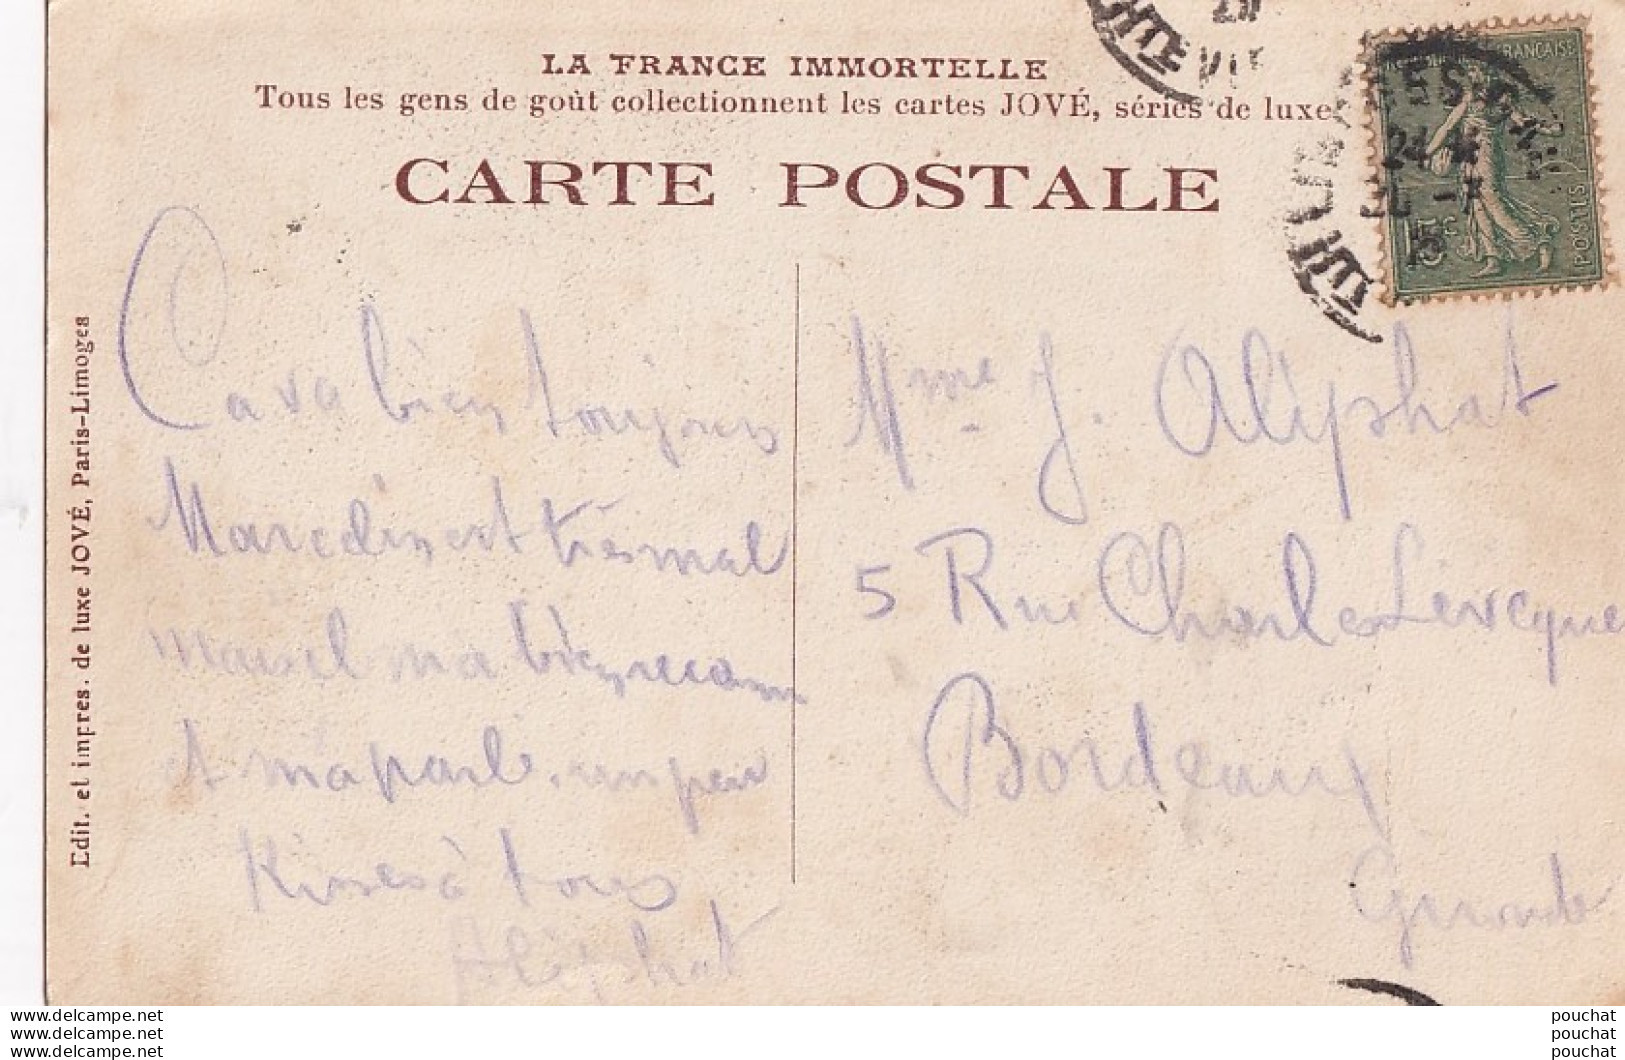 LA FRANCE IMMORTELLE
Tous les gens de goût collectionnent les cartes JOVÉ, séries de luxe
CARTE POSTALE
RÉPUBLIQUE FRANÇAISE
24
15
15c
POSTES
Edit. et impres. de luxe JOVÉ, Paris-Limoges
Ca va bien toujours
Marcelin est très mal
mais il m'a bien reconnu
et m'a parlé un peu
Kisses à tous
Aliphat
Mme J. Aliphat
5 Rue Charles Levêque
Bordeaux
Gironde
www.delcampe.net
www.delcampe.net
www.delcampe.net
pouchat
pouchat
pouchat